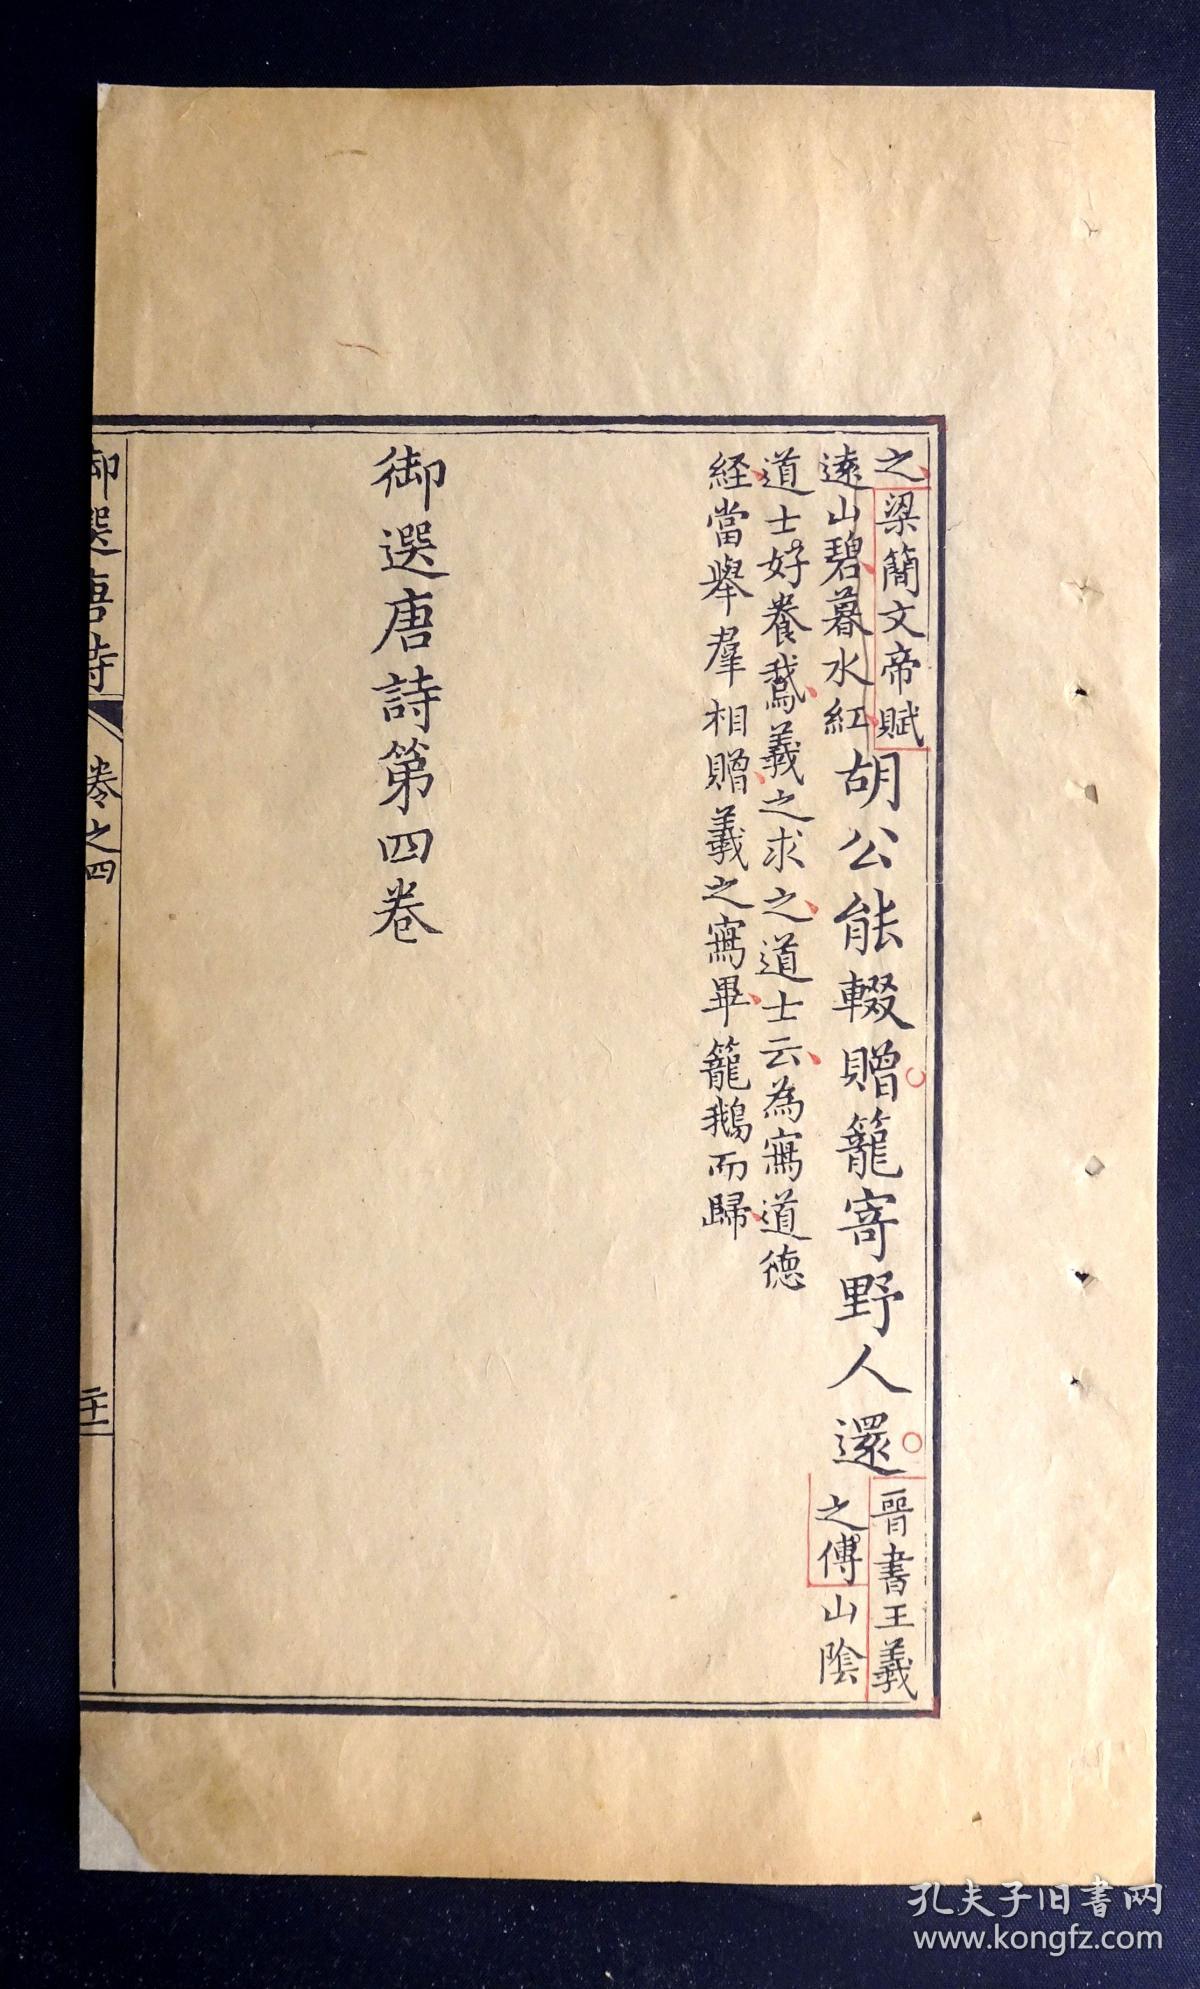 之梁簡文帝賦
遠山碧暮水紅
胡公能輟贈籠寄野人還
晉書王羲
之傅山陰
道士好養鵞羲之求之道士云為寫道德
経當舉羣相贈羲之寫畢籠鵝而歸
御選唐詩第四卷
御選唐詩
卷之四
二十一
孔夫子旧书网
www.kongfz.com